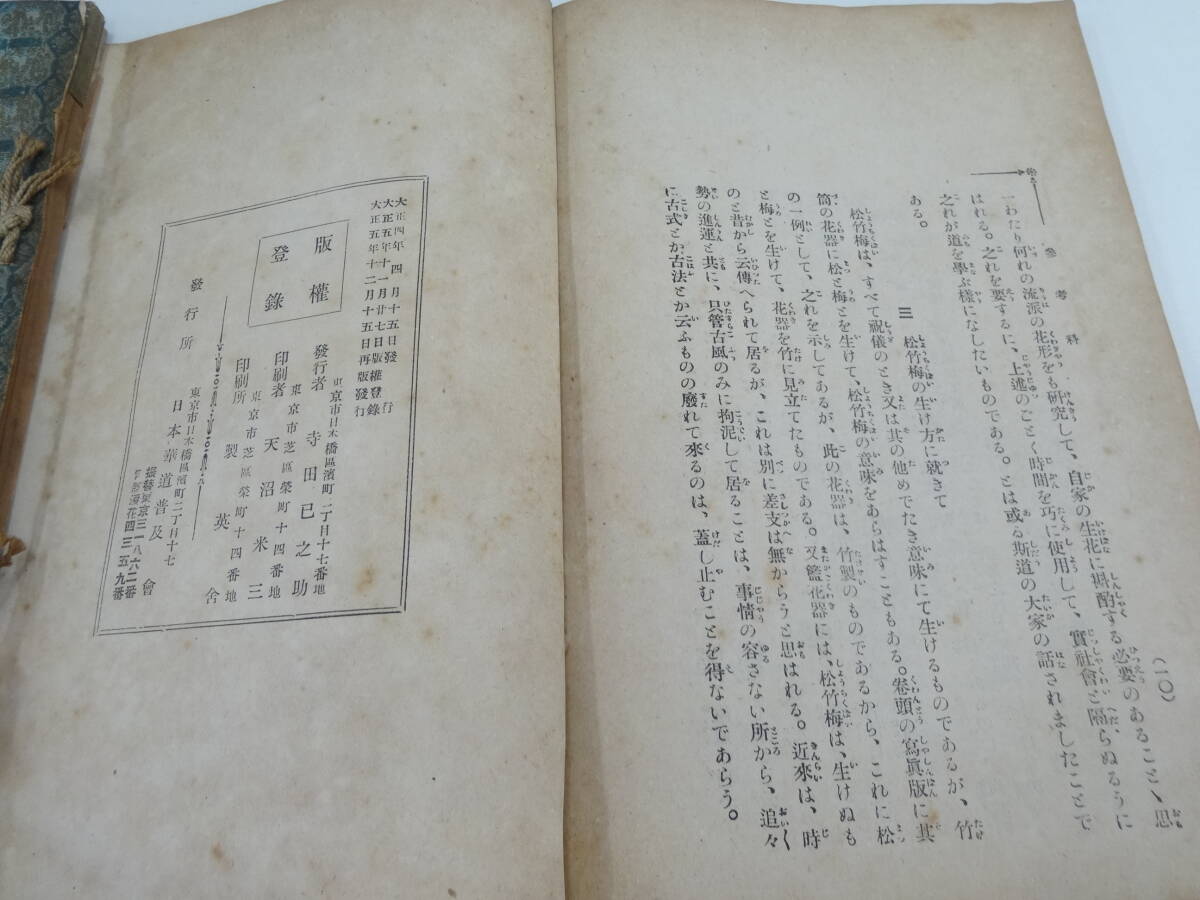 參考科
(一〇)
一わたり何れの流派の花形をも研究して、自家の生花に斟酌する必要のあることゝ思
はれる。之れを要するに、上述のごとく時間を巧に使用して、實社會と隔らぬるうに
之れが道を學ぶ樣になしたいものである。とは或る斯道の大家の話されましたことで
ある。
三 松竹梅の生け方に就きて
松竹梅は、すべて祝儀のとき又は其の他めでたき意味にて生けるものであるが、竹
筒の花器に松と梅とを生けて、松竹梅の意味をあらはすこともある。卷頭の寫眞版に其
の一例として、之れを示してあるが、此の花器は、竹製のものであるから、これに松
と梅とを生けて、花器を竹に見立てたものである。又籃花器には、松竹梅は、生けぬも
のと昔から云傳へられて居るが、これは別に差支は無からうと思はれる。近來は、時
勢の進運と共に、只管古風のみに拘泥して居ることは、事情の容さない所から、追々
に古式とか古法とか云ふものの廢れて來るのは、蓋し止むことを得ないであらう。
大正四年四月十五日發行
大正五年十一月廿七日版權登錄
大正五年十二月十五日再版發行
版權
登錄
東京市日本橋區濱町二丁目十七番地
發行者 寺田巳之助
東京市芝區榮町十四番地
印刷者 天沼米三
東京市芝區榮町十四番地
印刷所 製英舍
發行所
東京市日本橋區濱町二丁目十七
日本華道普及會
振替東京三一八六二番
浪花四三五九番